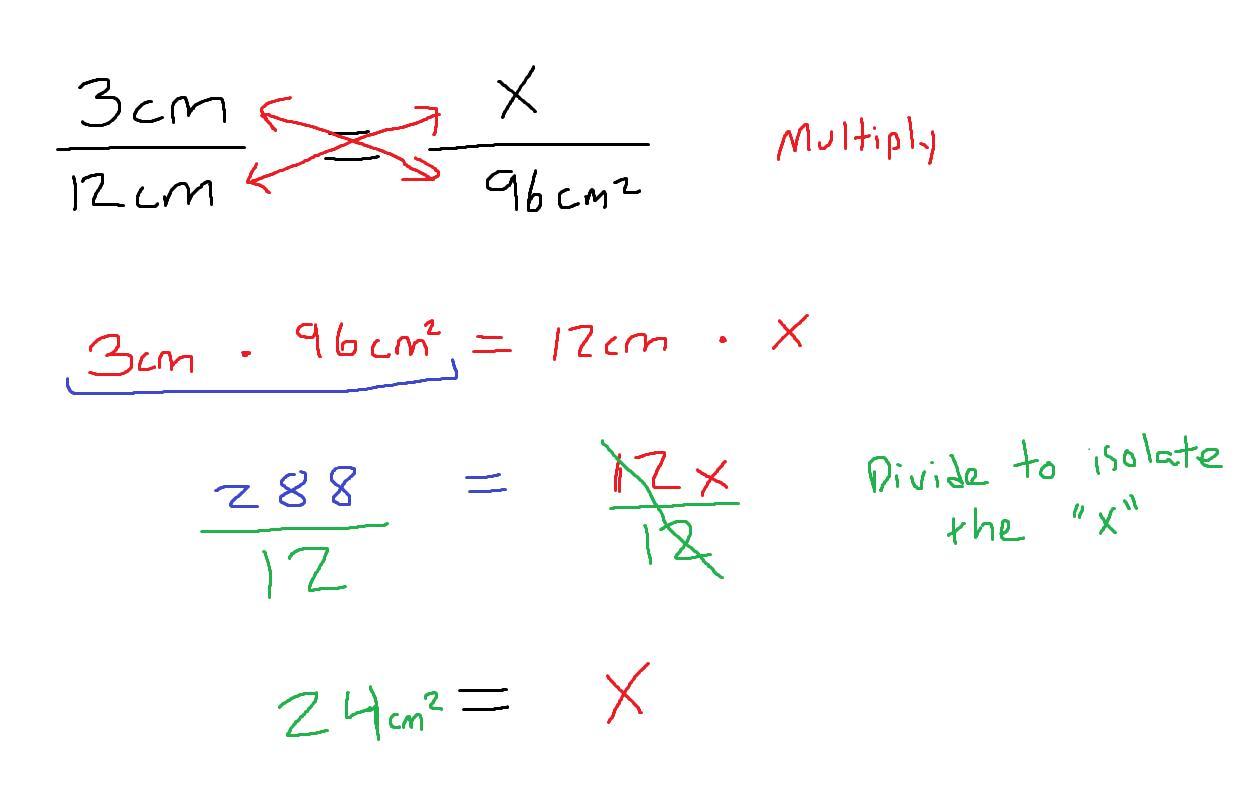 3cm = x
12cm 96cm²
Multiply
3cm · 96cm² = 12cm · x
288 = 12x
12 12
Divide to isolate
the "x"
24cm² = x